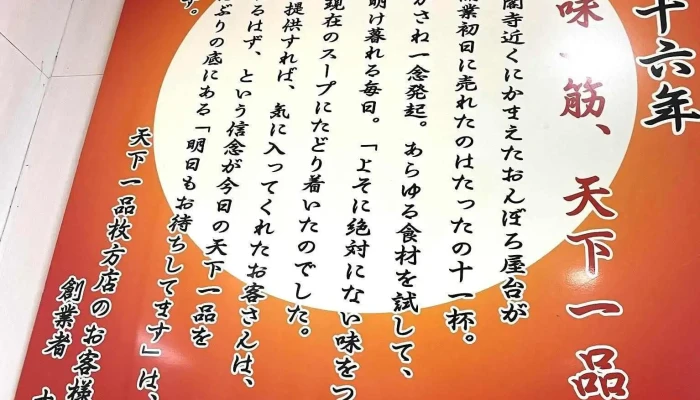 十六年
味一筋、天下一品
閣寺近くにかまえたおんぼろ屋台が
業初日に売れたのはたったの十一杯。
かさね一念発起。あらゆる食材を試して、
明け暮れる毎日。「よそに絶対にない味をつ
現在のスープにたどり着いたのでした。
提供すれば、気に入ってくれたお客さんは、
るはず、という信念が今日の天下一品を
ぶりの底にある「明日もお待ちしてます」は、
す。
天下一品枚方店のお客様
創業者